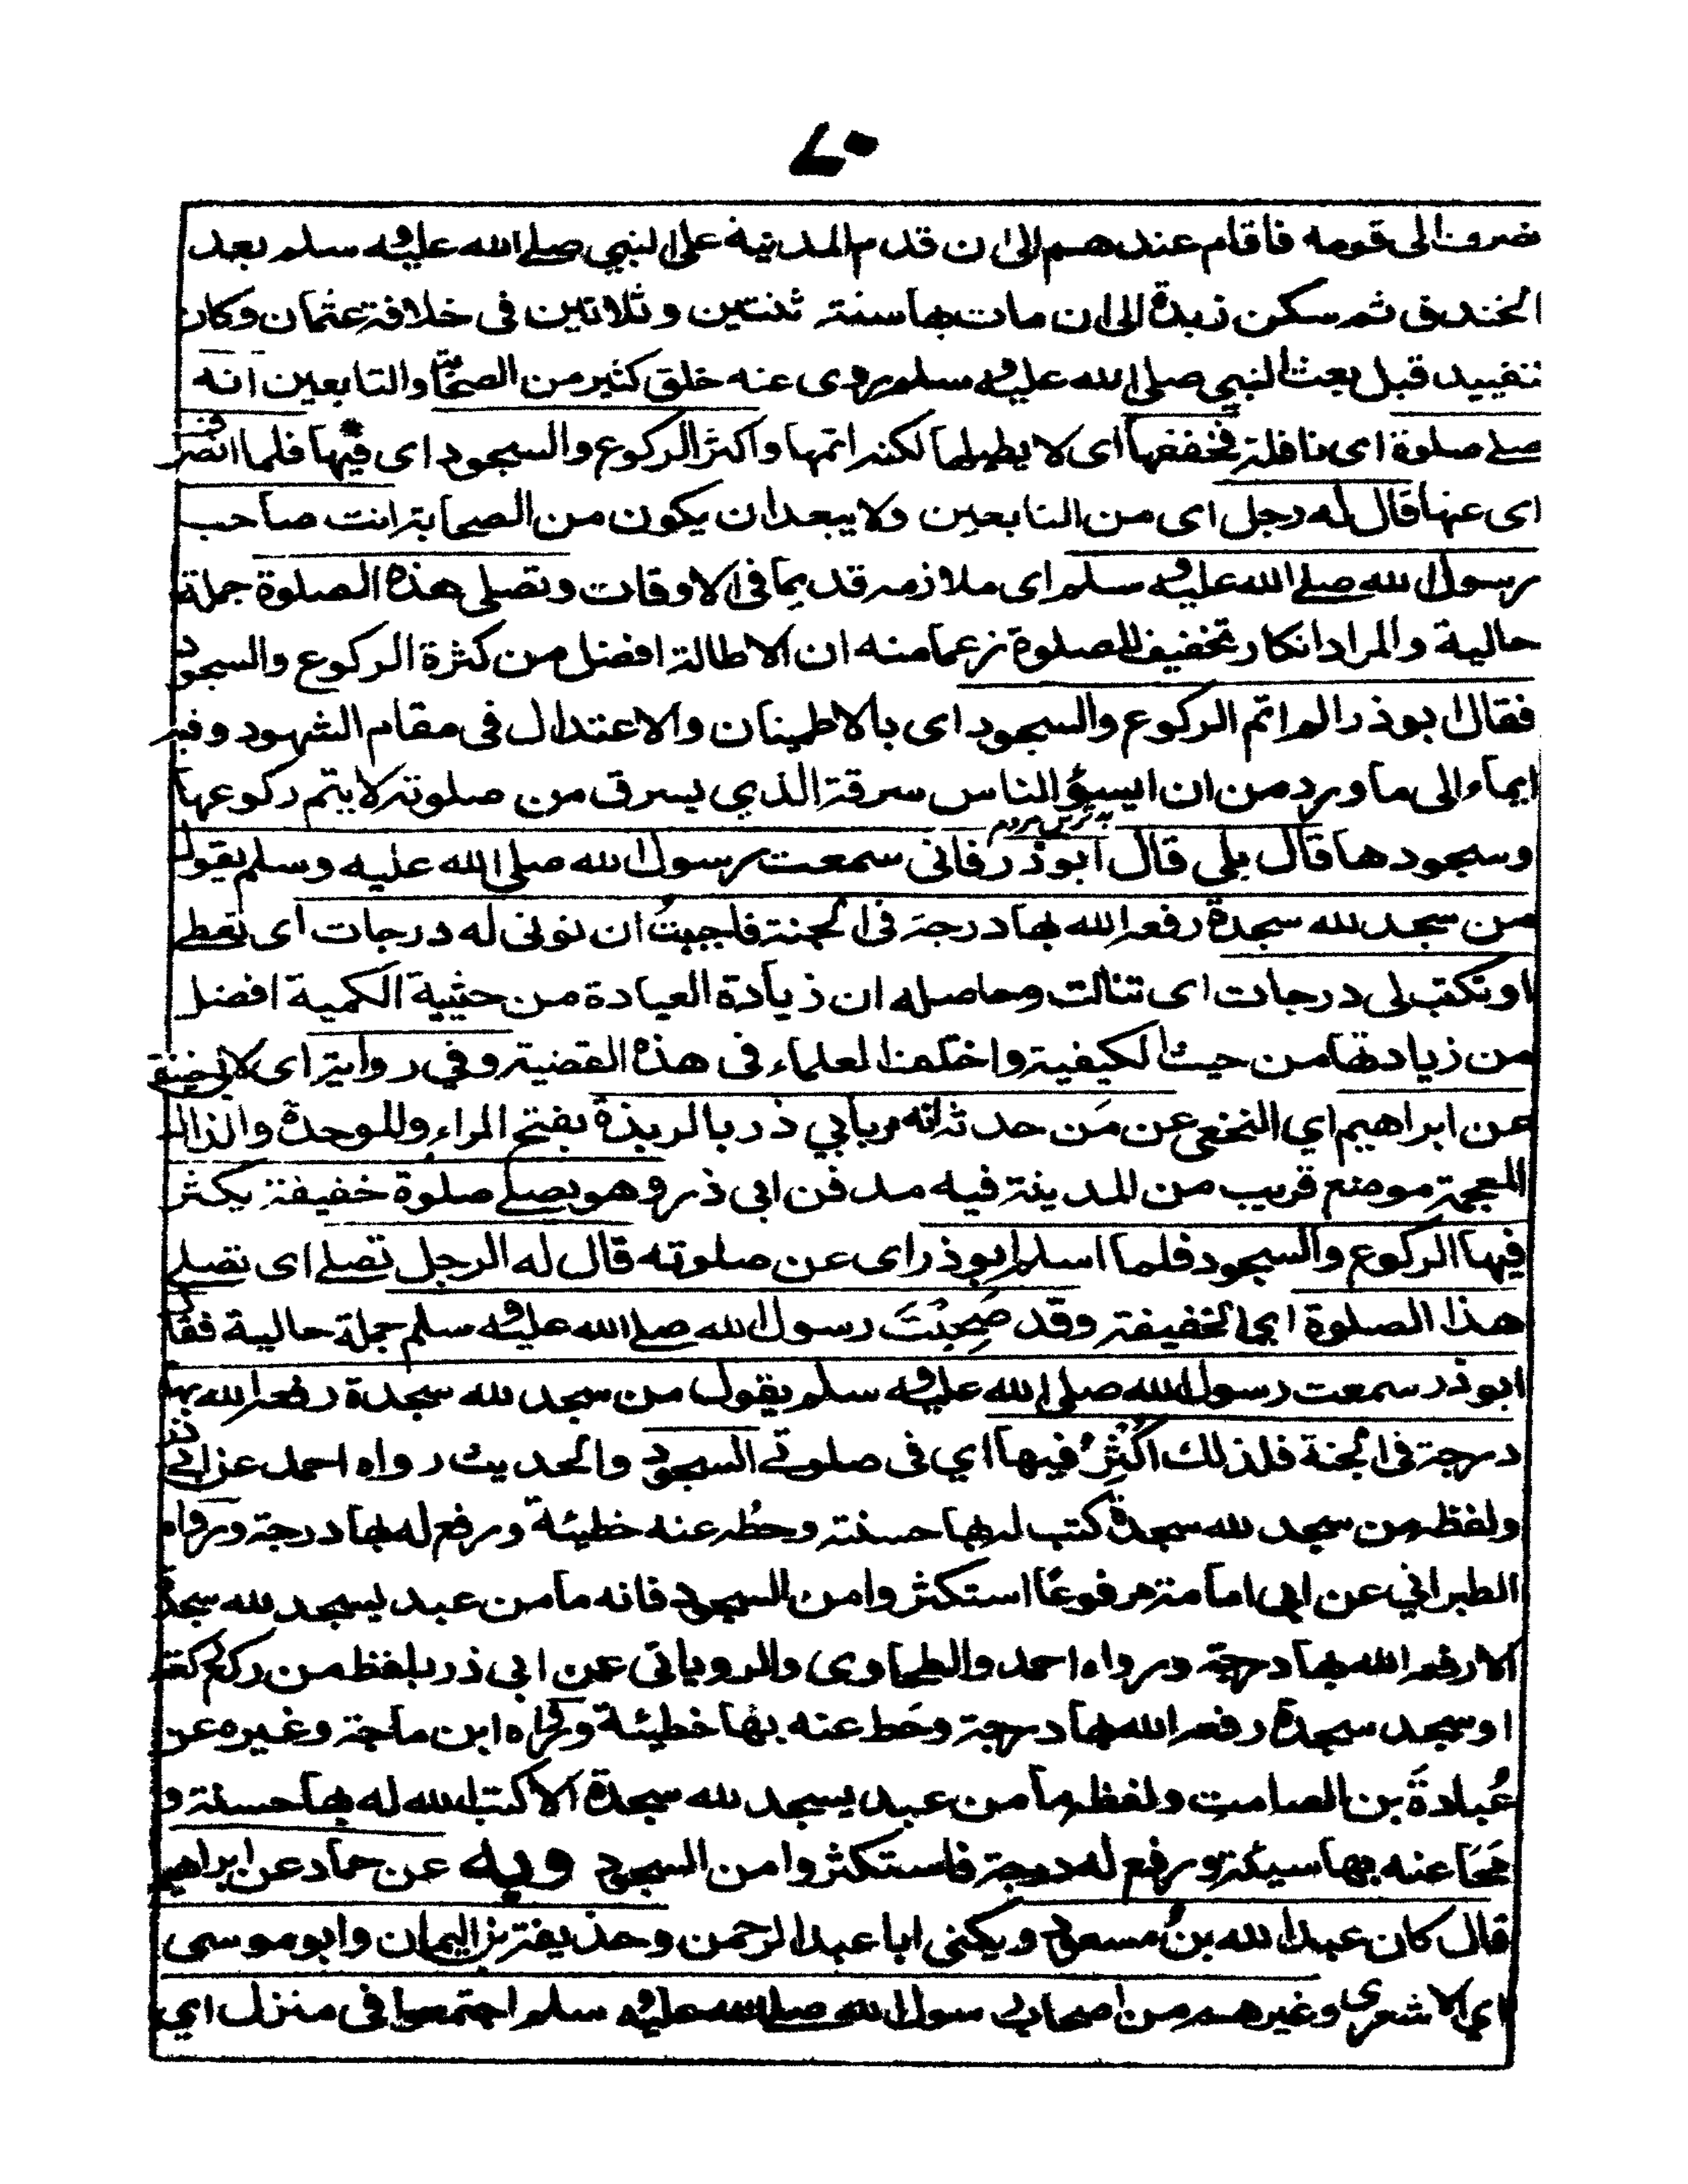 نصرف الى قومه فاقام عندهم الى ان قدم المدينة على النبي صلى الله عليه و سلم بعد
الخندق ثم سكن ربذة الى ان مات بها سنة ثنتين وثلاثين فى خلافة عثمان وكان
يتقيد قبل بعث النبي صلى الله عليه و سلم روى عنه خلق كثير من الصحابة والتابعين انه
صلى صلوة اى نافلة فخففها اى لا يطيلها لكنه اتمها واكثر الركوع والسجود اى فيها فلما انصرف
اى عنها قال له رجل اى من التابعين ولا يبعد ان يكون من الصحابة انت صاحب
رسول الله صلى الله عليه و سلم اى ملازمه قديما فى الاوقات وتصلى هذه الصلوة جملة
حالية والمراد انكار تخفيف الصلوة زعما منه ان الاطالة افضل من كثرة الركوع والسجود
فقال ابو ذر الم اتم الركوع والسجود اى بالاطمينان والاعتدال فى مقام الشهود وفيه
ايماء الى ما ورد من ان اسوؤ الناس سرقة الذي يسرق من صلوته لا يتم ركوعها
بدترين مردم
وسجودها قال بلى قال ابو ذر فانى سمعت رسول الله صلى الله عليه وسلم يقول
من سجد لله سجدة رفعه الله بها درجة فى الجنة فاحببت ان تونى له درجات اى تعطى
او تكتب لى درجات اى تنالت وحاصله ان زيادة العبادة من حيثية الكمية افضل
من زيادتها من حيث الكيفية واختلف العلماء فى هذه القضية وفي رواية اى لابى حنيفة
عن ابراهيم اي النخعى عن مَن حدثه انه مر بابي ذر بالربذة بفتح الراء والموحدة والذال
المعجمة موضع قريب من المدينة فيه مدفن ابى ذر و هو يصلى صلوة خفيفة يكثر
فيها الركوع والسجود فلما اسلم ابو ذر اى عن صلوته قال له الرجل تصلى اى تصلى
هذا الصلوة اى الخفيفة وقد صَحِبْتَ رسول الله صلى الله عليه و سلم جملة حالية فقال
ابو ذر سمعت رسول الله صلى الله عليه و سلم يقول من سجد لله سجدة رفعه الله بها
درجة فى الجنة فلذلك اُكْثِرُ فيها اي فى صلوتى السجود والحديث رواه احمد عن ابى ذر
ولفظه من سجد لله سجدة كتب له بها حسنة وحط عنه خطيئة ورفع له بها درجة ورواه
الطبراني عن ابى امامة مرفوعًا استكثروا من السجود فانه ما من عبد يسجد لله سجدة
الا رفعه الله بها درجة ورواه احمد والطحاوى والرويانى عن ابى ذر بلفظ من ركع ركعة
او سجد سجدة رفعه الله بها درجة وحَط عنه بها خطيئة ورواه ابن ماجة وغيره عن
عُبادةَ بن الصامت ولفظه ما من عبد يسجد لله سجدة الا كتب الله له بها حسنة و
مَحَا عنه بها سيئة ورفع له درجة فاستكثروا من السجود وبه عن حماد عن ابراهيم
قال كان عبد الله بن مسعود ويكنى ابا عبد الرحمن وحذيفة بن اليمان وابو موسى
اي الاشعرى وغيرهم من اصحاب رسول الله صلى الله عليه و سلم اجتمعوا فى منزل اي